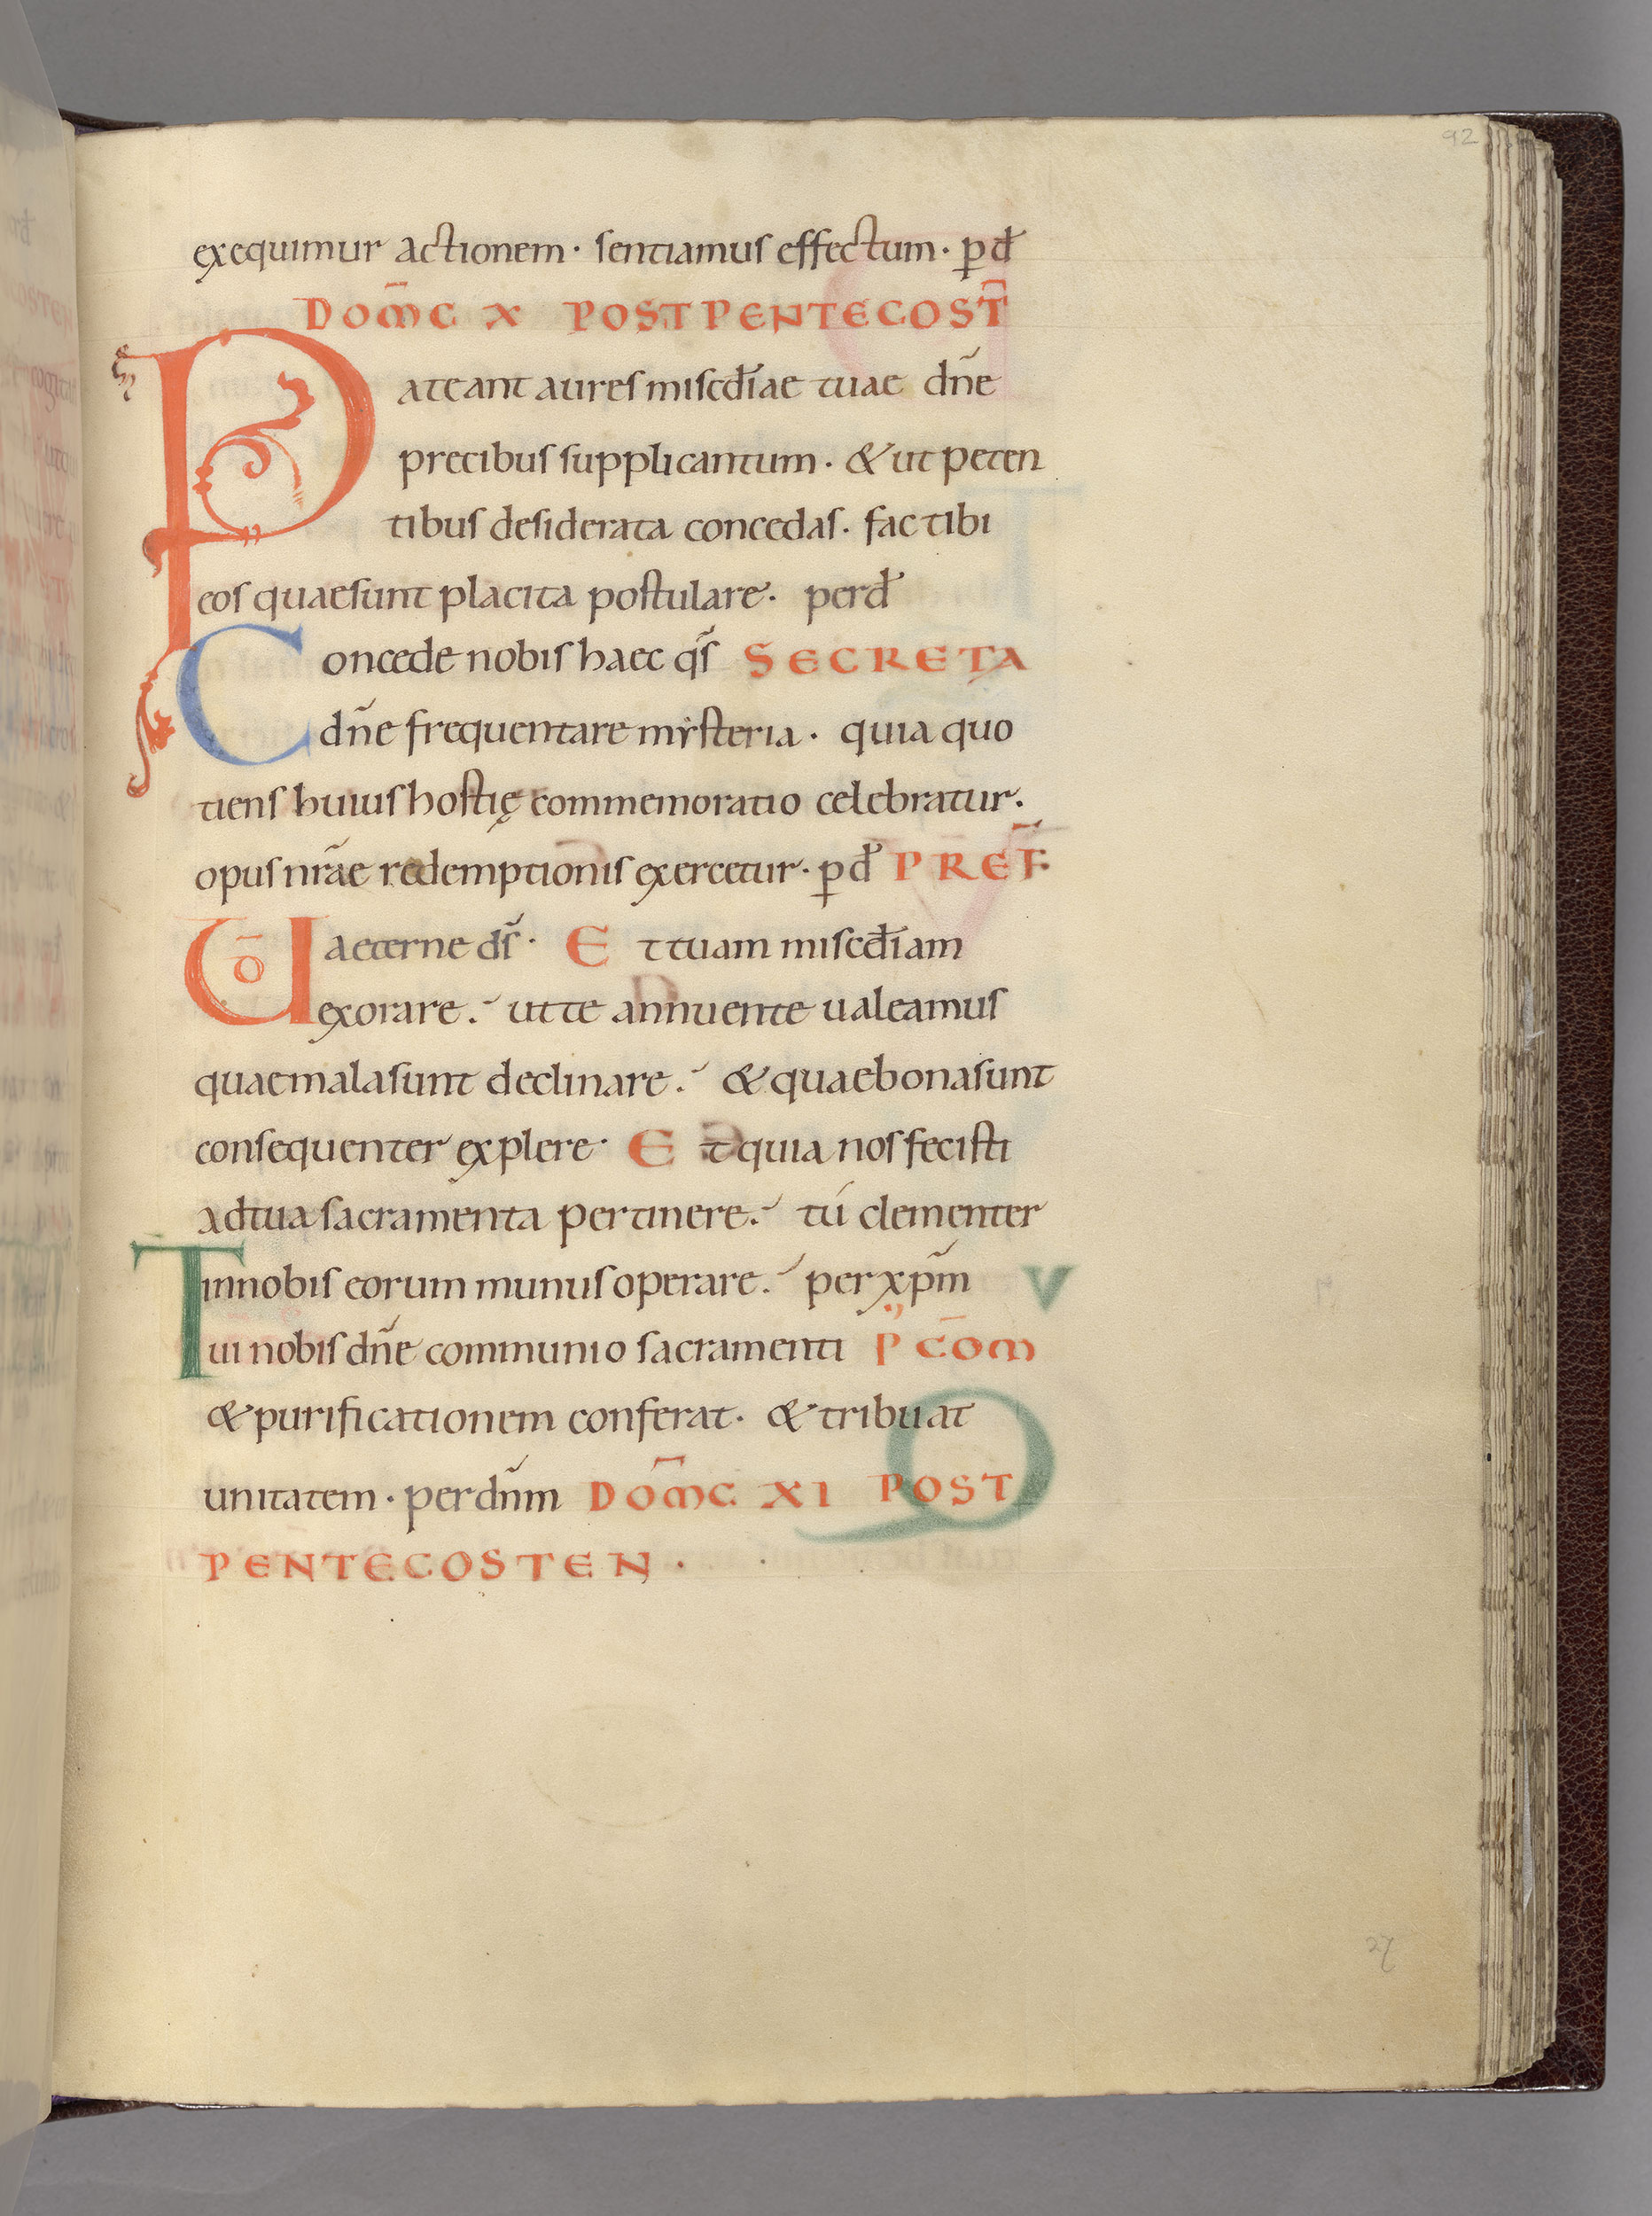 92
exequimur actionem· sentiamus effectum· p̲d̄
DOM̄C X POST PENTECOST̄
Pateant aures misc̄diae tuae dn̄e
precibus supplicantum· & ut peten
tibus desiderata concedas· fac tibi
eos quae sunt placita postulare· perd̄
Concede nobis haec qs̄ SECRETA
dn̄e frequentare mẏsteria· quia quo
tiens huius hostię commemoratio celebratur·
opus nr̄ae redemptionis exercetur· p̲d̄ PREF̄:
UŌ aeterne ds̄· Et tuam misc̄diam
exorare. ut te annuente ualeamus
quae mala sunt declinare. & quae bona sunt
consequenter explere· Et quia nos fecisti
ad tua sacramenta pertinere. tú clementer
in nobis eorum munus operare. per xp̄m V
Tui nobis dn̄e communio sacramenti P̄ CŌM
& purificationem conferat· & tribuat
unitatem· per dn̄m DOM̄C XI POST
PENTECOSTEN·
27